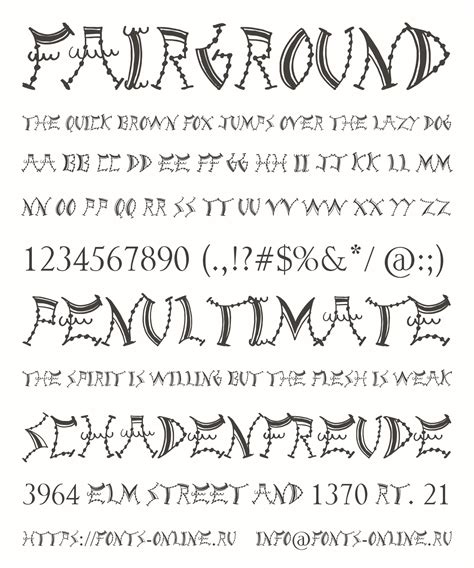 FAIRGROUND
THE QUICK BROWN FOX JUMPS OVER THE LAZY DOG
AA BB CC DD EE FF GG HH II JJ KK LL MM
NN OO PP QQ RR SS TT UU VV WW XX YY ZZ
1234567890 (.,!?#$%&*/ @:;)
PENULTIMATE
THE SPIRIT IS WILLING BUT THE FLESH IS WEAK
SCHADENFREUDE
3964 ELM STREET AND 1370 RT. 21
HTTPS://FONTS-ONLINE.RU INFO@FONTS-ONLINE.RU